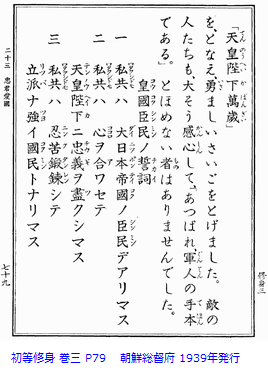 「天皇陛下萬歲」
を、となえ、勇ましいさいごをとげました。敵の
人たちも、大そう感心して、「あっぱれ、軍人の手本
である。」とほめない者はありませんでした。
皇國臣民ノ誓詞
一 私共ハ 大日本帝國ノ臣民デアリマス
二 私共ハ 心ヲ合ワセテ
天皇陛下ニ忠義ヲ盡クシマス
三 私共ハ 忍苦鍛鍊シテ
立派ナ強イ國民トナリマス
修身三
二十三 忠君愛國
七十九
初等修身 巻三 P79 朝鮮総督府 1939年発行